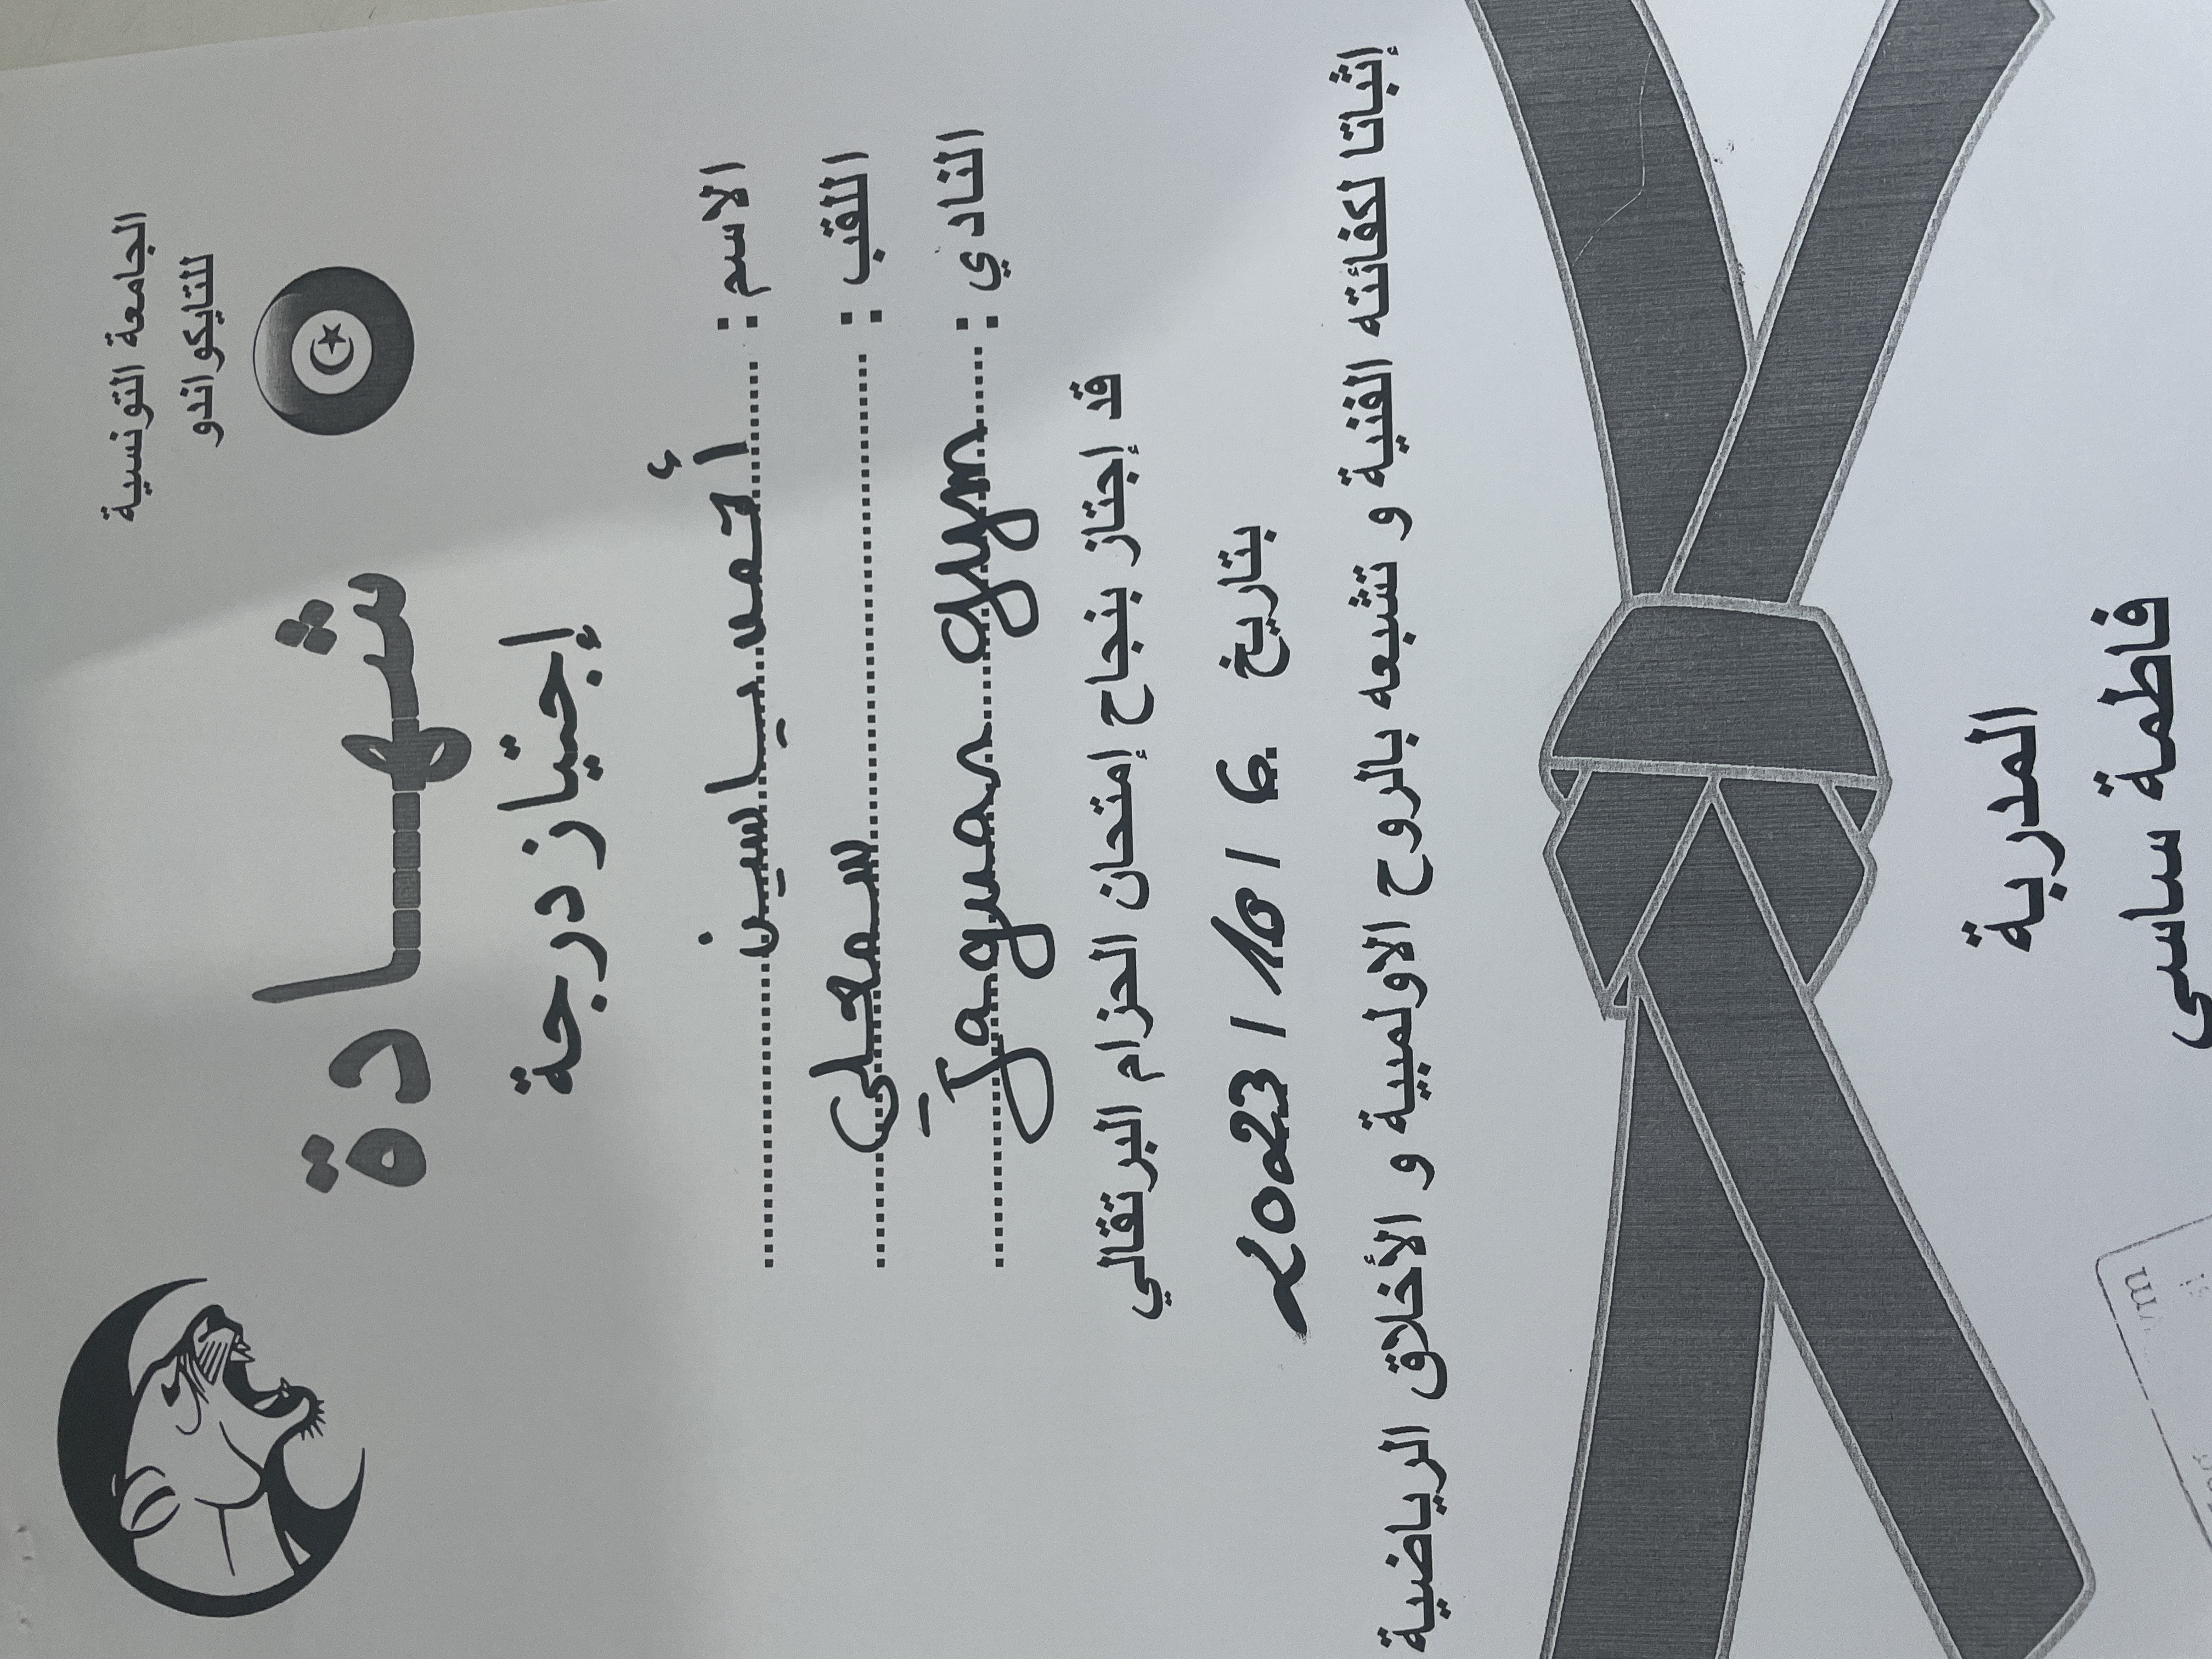 الجامعة التونسية
للتايكواندو
شهادة
إجتياز درجة
الاسم : أحمد ياسين
اللقب : سمعلي
النادي : Jaguar gym
قد إجتاز بنجاح إمتحان الحزام البرتقالي
بتاريخ 6 / 10 / 2023
إثباتا لكفائته الفنية و تشبعه بالروح الاولمبية و الأخلاق الرياضية
المدربة
فاطمة ساسي